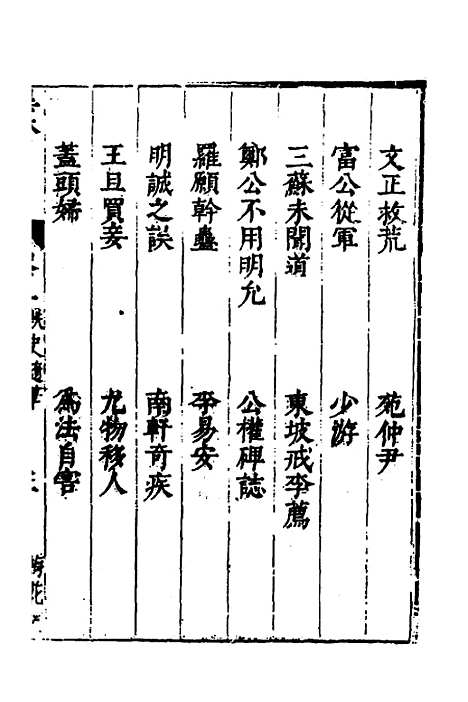 文正救荒　范仲尹
富公從軍　少游
三蘇未聞道　東坡戒李廌
鄭公不用明允　公權碑誌
羅願幹蠱　李易安
明誠之誤　南軒奇疾
王旦買妾　尤物移人
蓋頭婦　為法自害